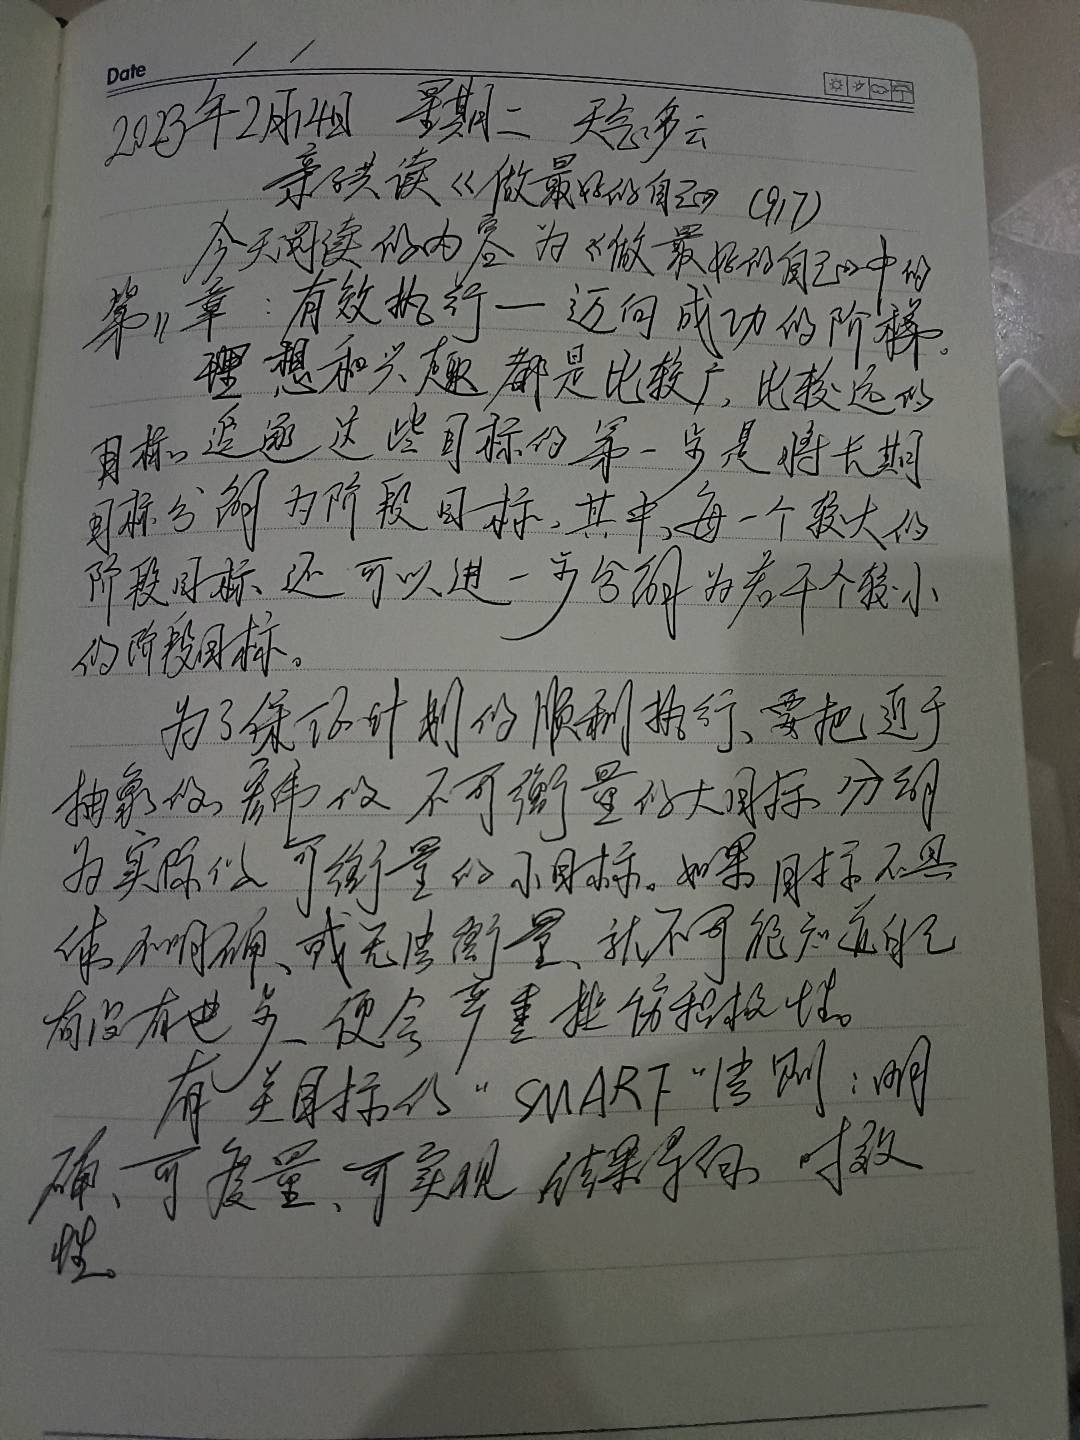 Date / /
2023年2月14日 星期二 天气多云
亲子共读《做最好的自己》(917)
今天阅读的内容为《做最好的自己》中的
第11章:有效执行—迈向成功的阶梯。
理想和兴趣都是比较广,比较远的
目标。追逐这些目标的第一步是将长期
目标分解为阶段目标,其中,每一个较大的
阶段目标、还可以进一步分解为若干个较小
的阶段目标。
为了保证计划的顺利执行、要把近于
抽象的、宏伟的不可衡量的大目标分解
为实际的、可衡量的小目标。如果目标不具
体、不明确、或无法衡量、就不可能知道自己
有没有进步、便会严重挫伤积极性。
有关目标的“SMART”法则:明
确、可度量、可实现 结果导向、时效
性。